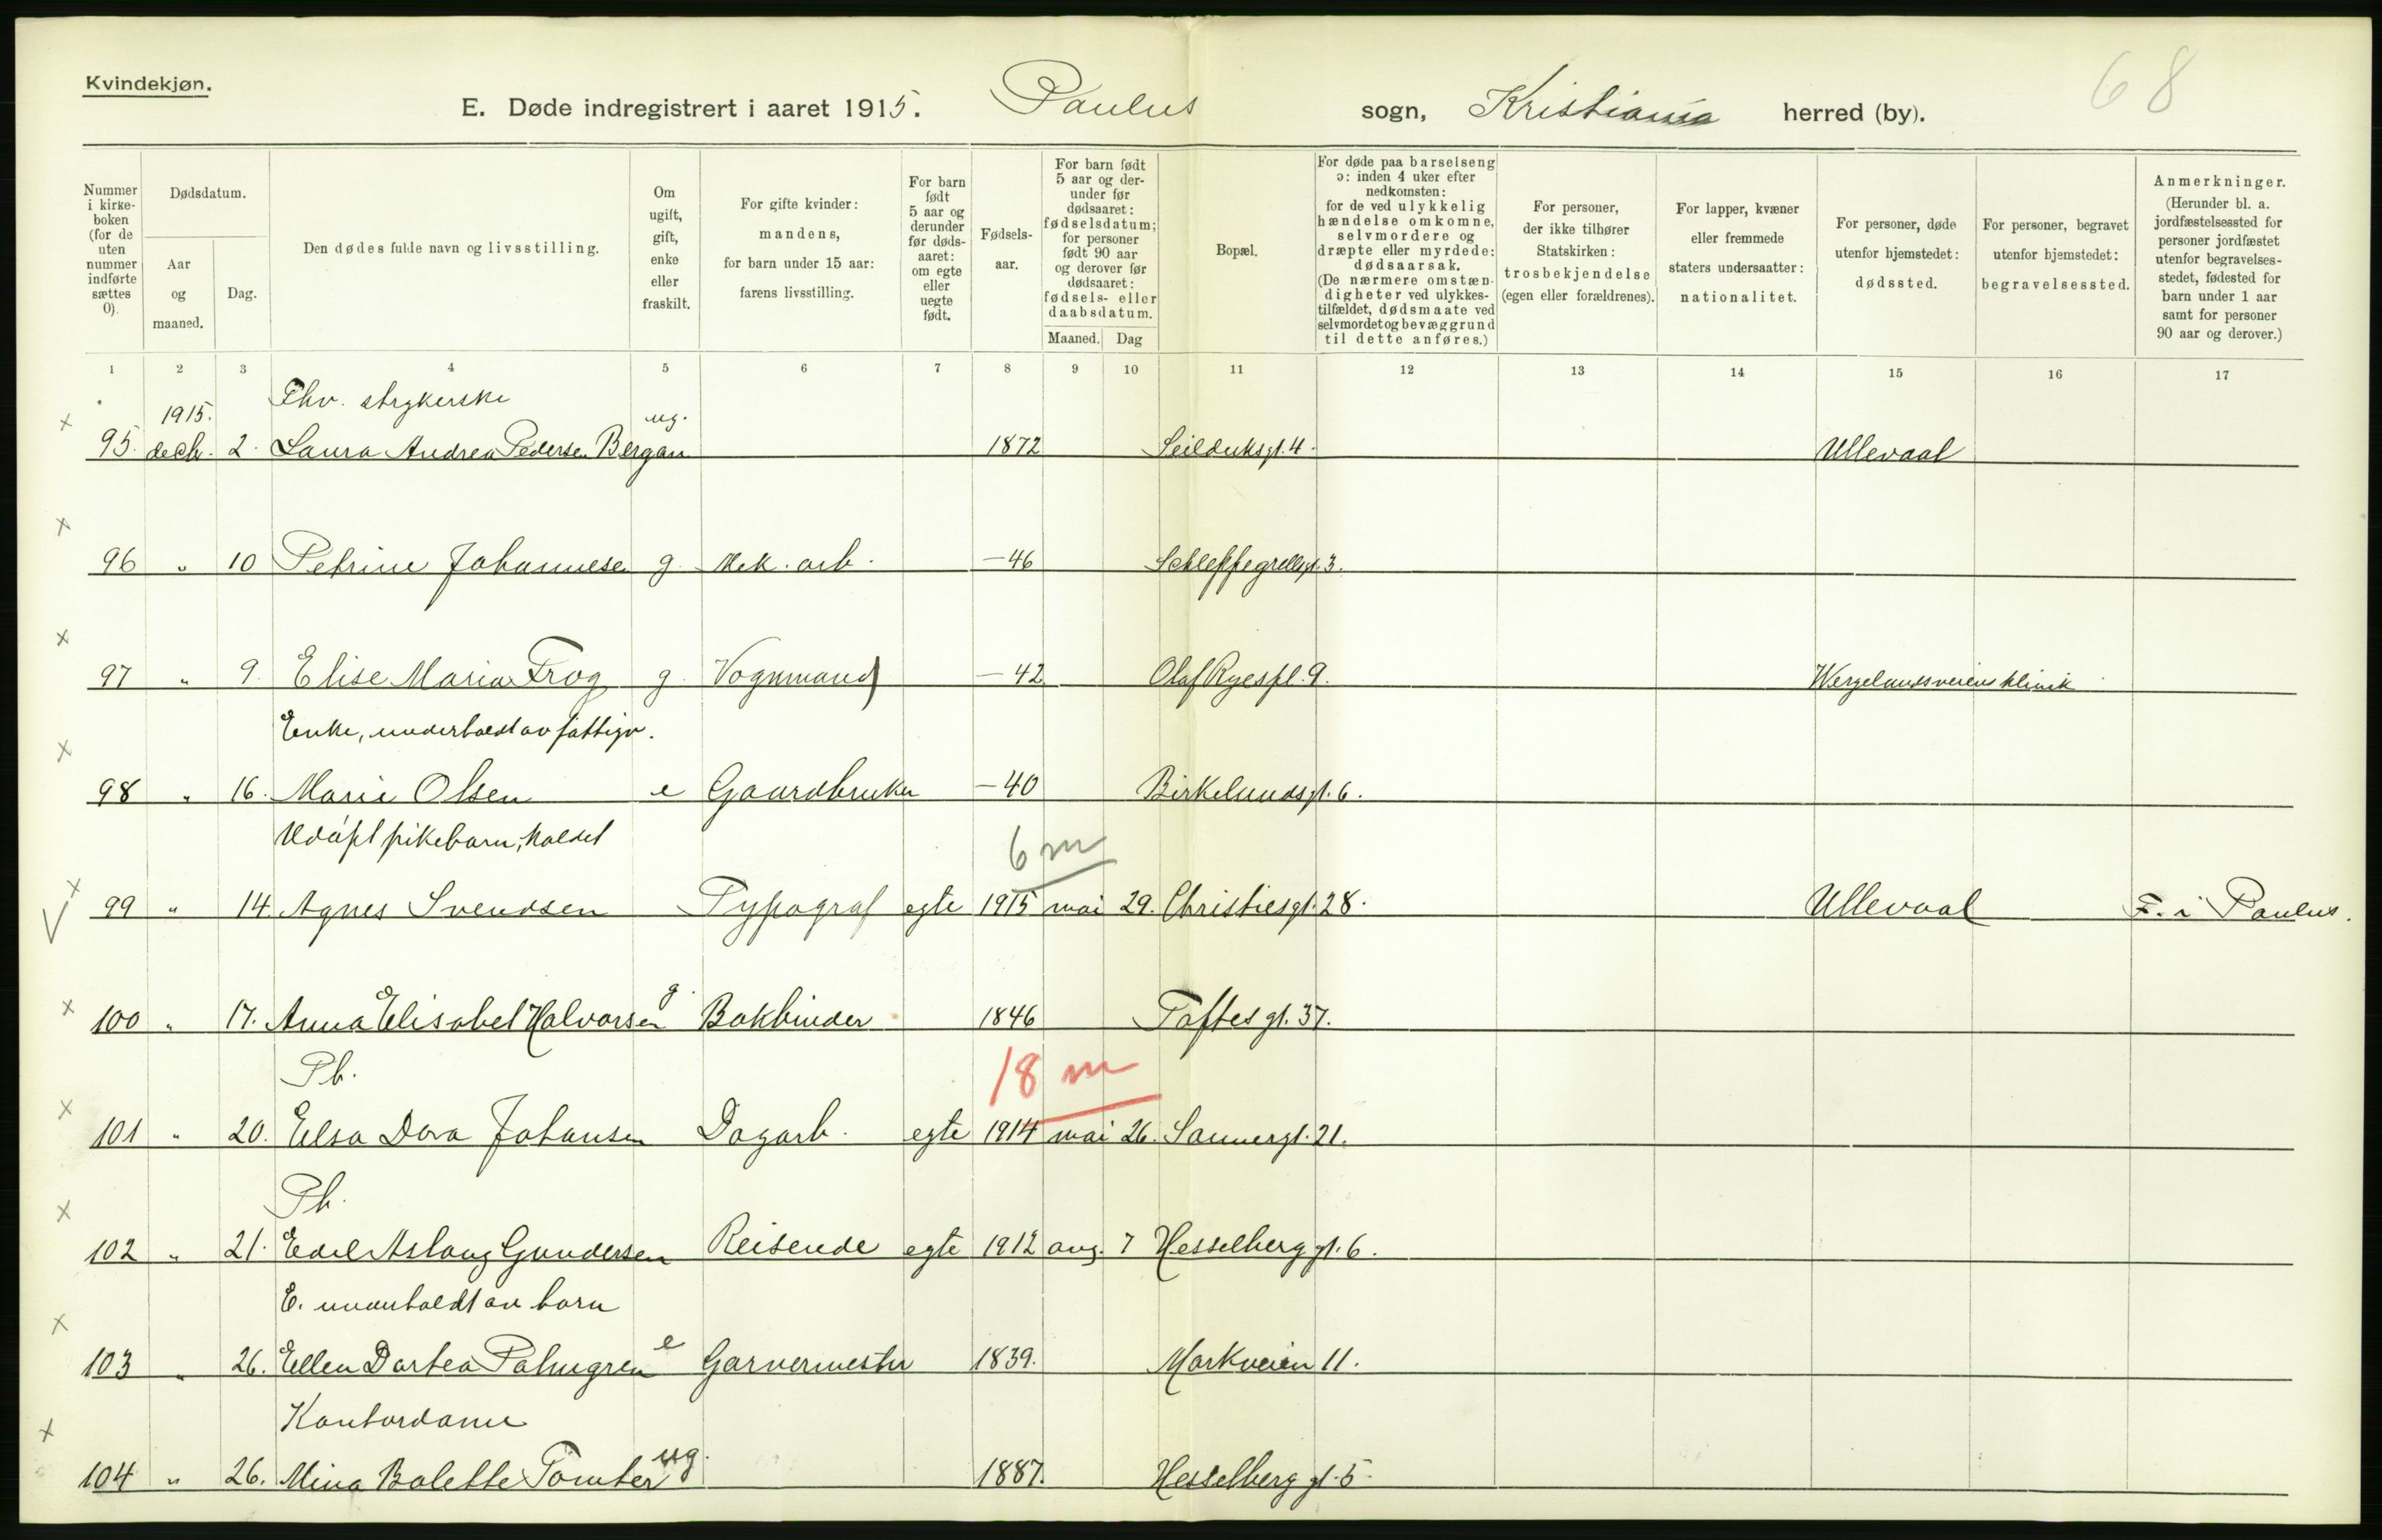 Kvindekjøn.
E. Døde indregistrert i aaret 1915. Paulus sogn, Kristiania herred (by).
68
Nummer i kirkeboken (for de uten nummer indførte sættes 0).
Dødsdatum.
Aar og maaned.
Dag.
Den dødes fulde navn og livsstilling.
Om ugift, gift, enke eller fraskilt.
For gifte kvinder: mandens, for barn under 15 aar: farens livsstilling.
For barn født 5 aar og derunder før dødsaaret: om egte eller uegte født.
Fødselsaar.
For barn født 5 aar og derunder før dødsaaret: fødselsdatum; for personer født 90 aar og derover før dødsaaret: fødsels- eller daabsdatum.
Maaned. Dag
Bopæl.
For døde paa barselseng ɔ: inden 4 uker efter nedkomsten: for de ved ulykkelig hændelse omkomne, selvmordere og dræpte eller myrdede: dødsaarsak. (De nærmere omstændigheter ved ulykkestilfældet, dødsmaate ved selvmordet og bevæggrund til dette anføres.)
For personer, der ikke tilhører Statskirken: trosbekjendelse (egen eller forældrenes).
For lapper, kvæner eller fremmede staters undersaatter: nationalitet.
For personer, døde utenfor hjemstedet: dødssted.
For personer, begravet utenfor hjemstedet: begravelsessted.
Anmerkninger. (Herunder bl. a. jordfæstelsessted for personer jordfæstet utenfor begravelsesstedet, fødested for barn under 1 aar samt for personer 90 aar og derover.)
1 2 3 4 5 6 7 8 9 10 11 12 13 14 15 16 17
1915. Fhv. strykerske ug.
x 95. decb. 2. Laura Andrea Pedersen Bergan 1872 Seilduksgt. 4. Ullevaal
x 96 " 10 Petrine Johannesen g. Mek. arb. -46 Schleppegrellsgt. 3.
x 97 " 9. Elise Maria Frog g. Vognmand -42. Olaf Ryespl. 9. Wergelandsveiens klinik
Enke, underholdt av fattigv.
x 98 " 16. Marie Olsen e Gaardbruker -40 Birkelundsgt. 6.
Udøpt pikebarn, kaldet
6 m
x V 99 " 14 Agnes Svendsen Typograf egte 1915 mai 29. Christiesgt. 28. Ullevaal F. i Paulus.
x 100 " 17. Anna Elisabet Halvorsen g. Bokbinder 1846 Toftesgt. 37.
Pb.
18 m
x 101 " 20. Elsa Dora Johansen Dagarb. egte 1914 mai 26. Sannergt. 21.
Pb.
x 102 " 21. Edel Aslaug Gundersen Reisende egte 1912 aug. 7 Hesselberg gt. 6.
E. underholdt av barn
x 103 " 26. Ellen Dortea Palmgren e Garvermester 1839. Markveien 11.
Kontordame
x 104 " 26. Mina Bolette Tomter ug. 1887. Hesselberg gt. 5.